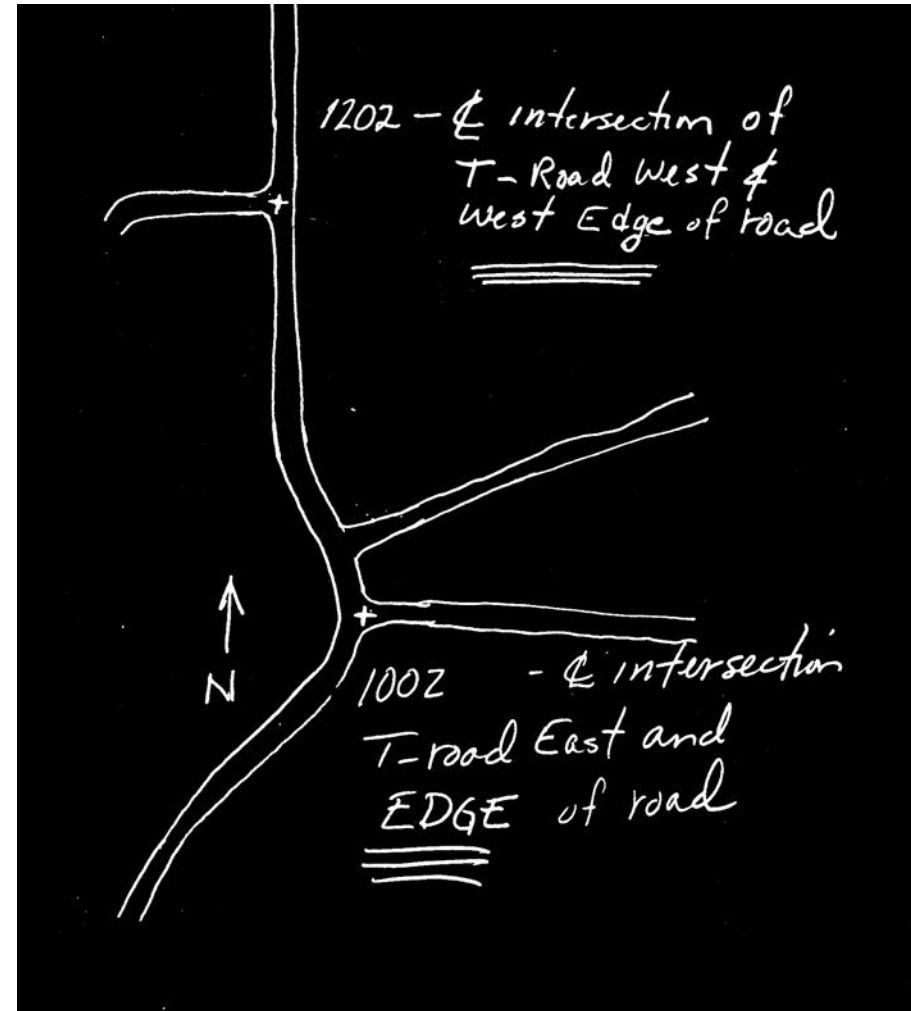 1202 - ℄ intersection of
T-Road West &
West Edge of road
N
1002 - ℄ intersection
T-road East and
EDGE of road